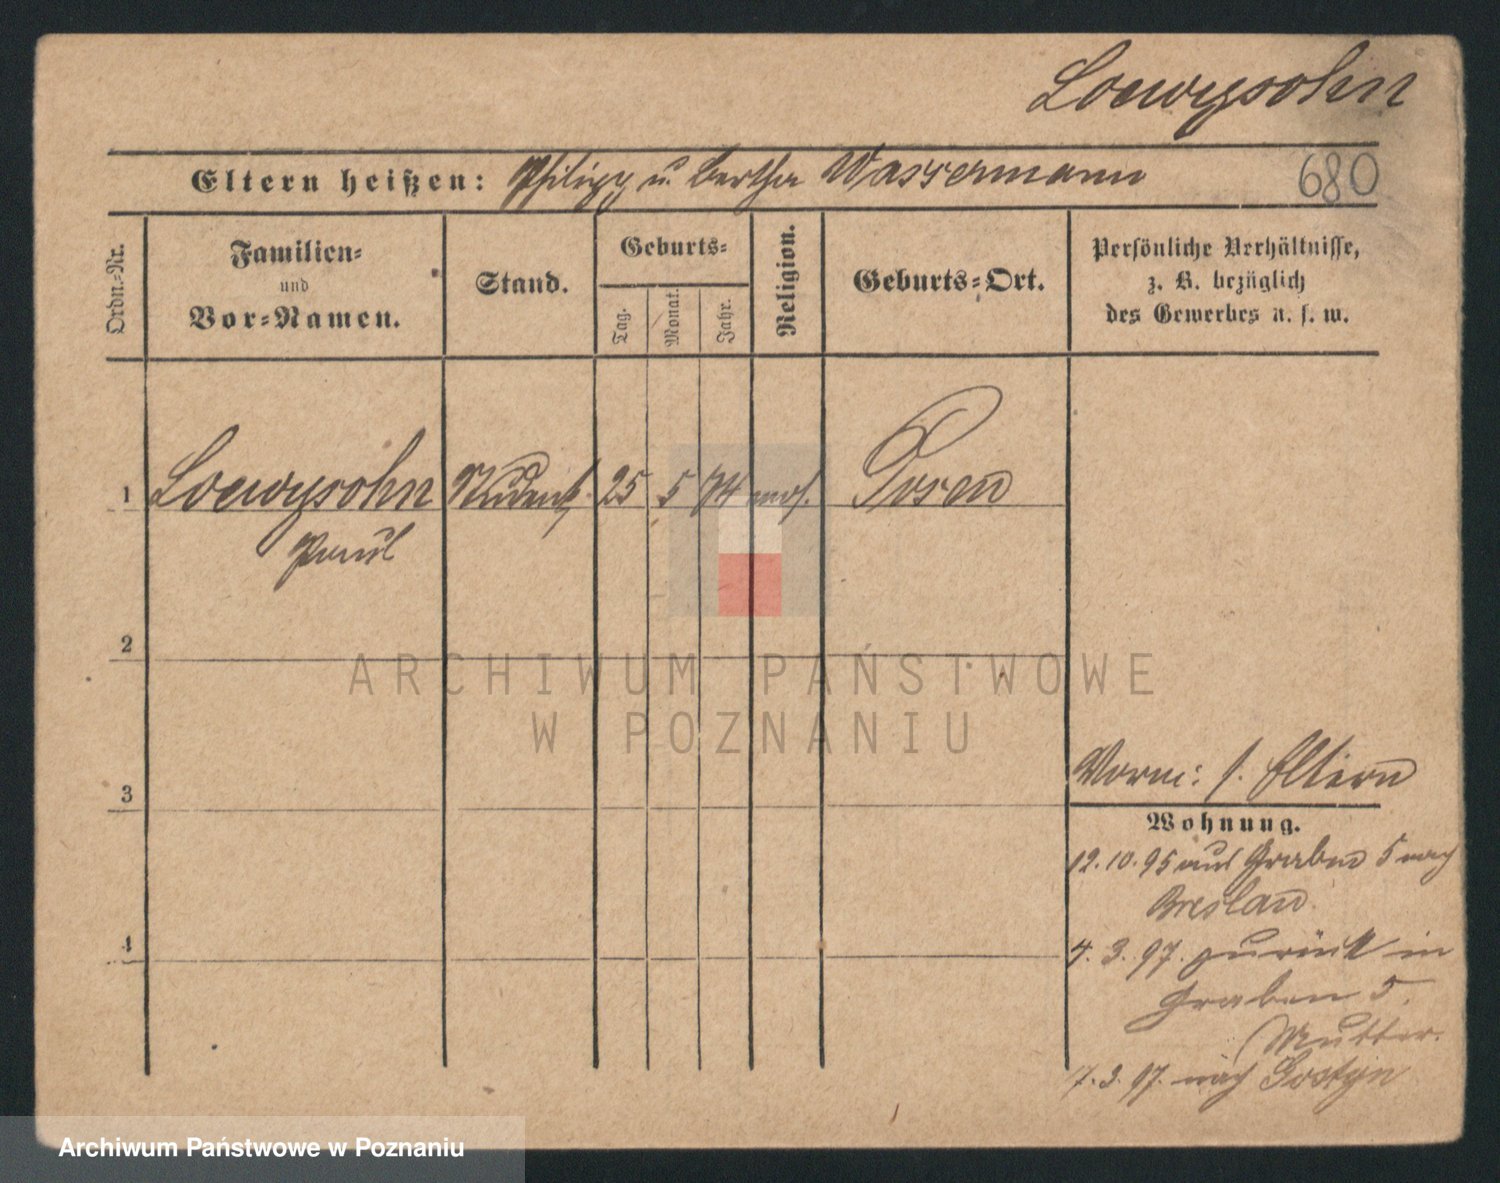 Loewysohn
Eltern heißen: Philipp u. Bertha Wassermann
680
Ordn.-Nr.
Familien-
und
Vor-Namen.
Stand.
Geburts-
Tag.
Monat.
Jahr.
Religion.
Geburts-Ort.
Persönliche Verhältnisse,
z. B. bezüglich
des Gewerbes u. s. w.
1 Loewysohn Student 25 5 74 mos. Posen
Paul
2
3
4
Vorm: s. Eltern
Wohnung.
12.10.95 aus Graben 5 nach
Breslau.
4.3.97. zurück in
Graben 5.
Mutter.
7.3.97. nach Gostyn
ARCHIWUM PAŃSTWOWE
W POZNANIU
Archiwum Państwowe w Poznaniu